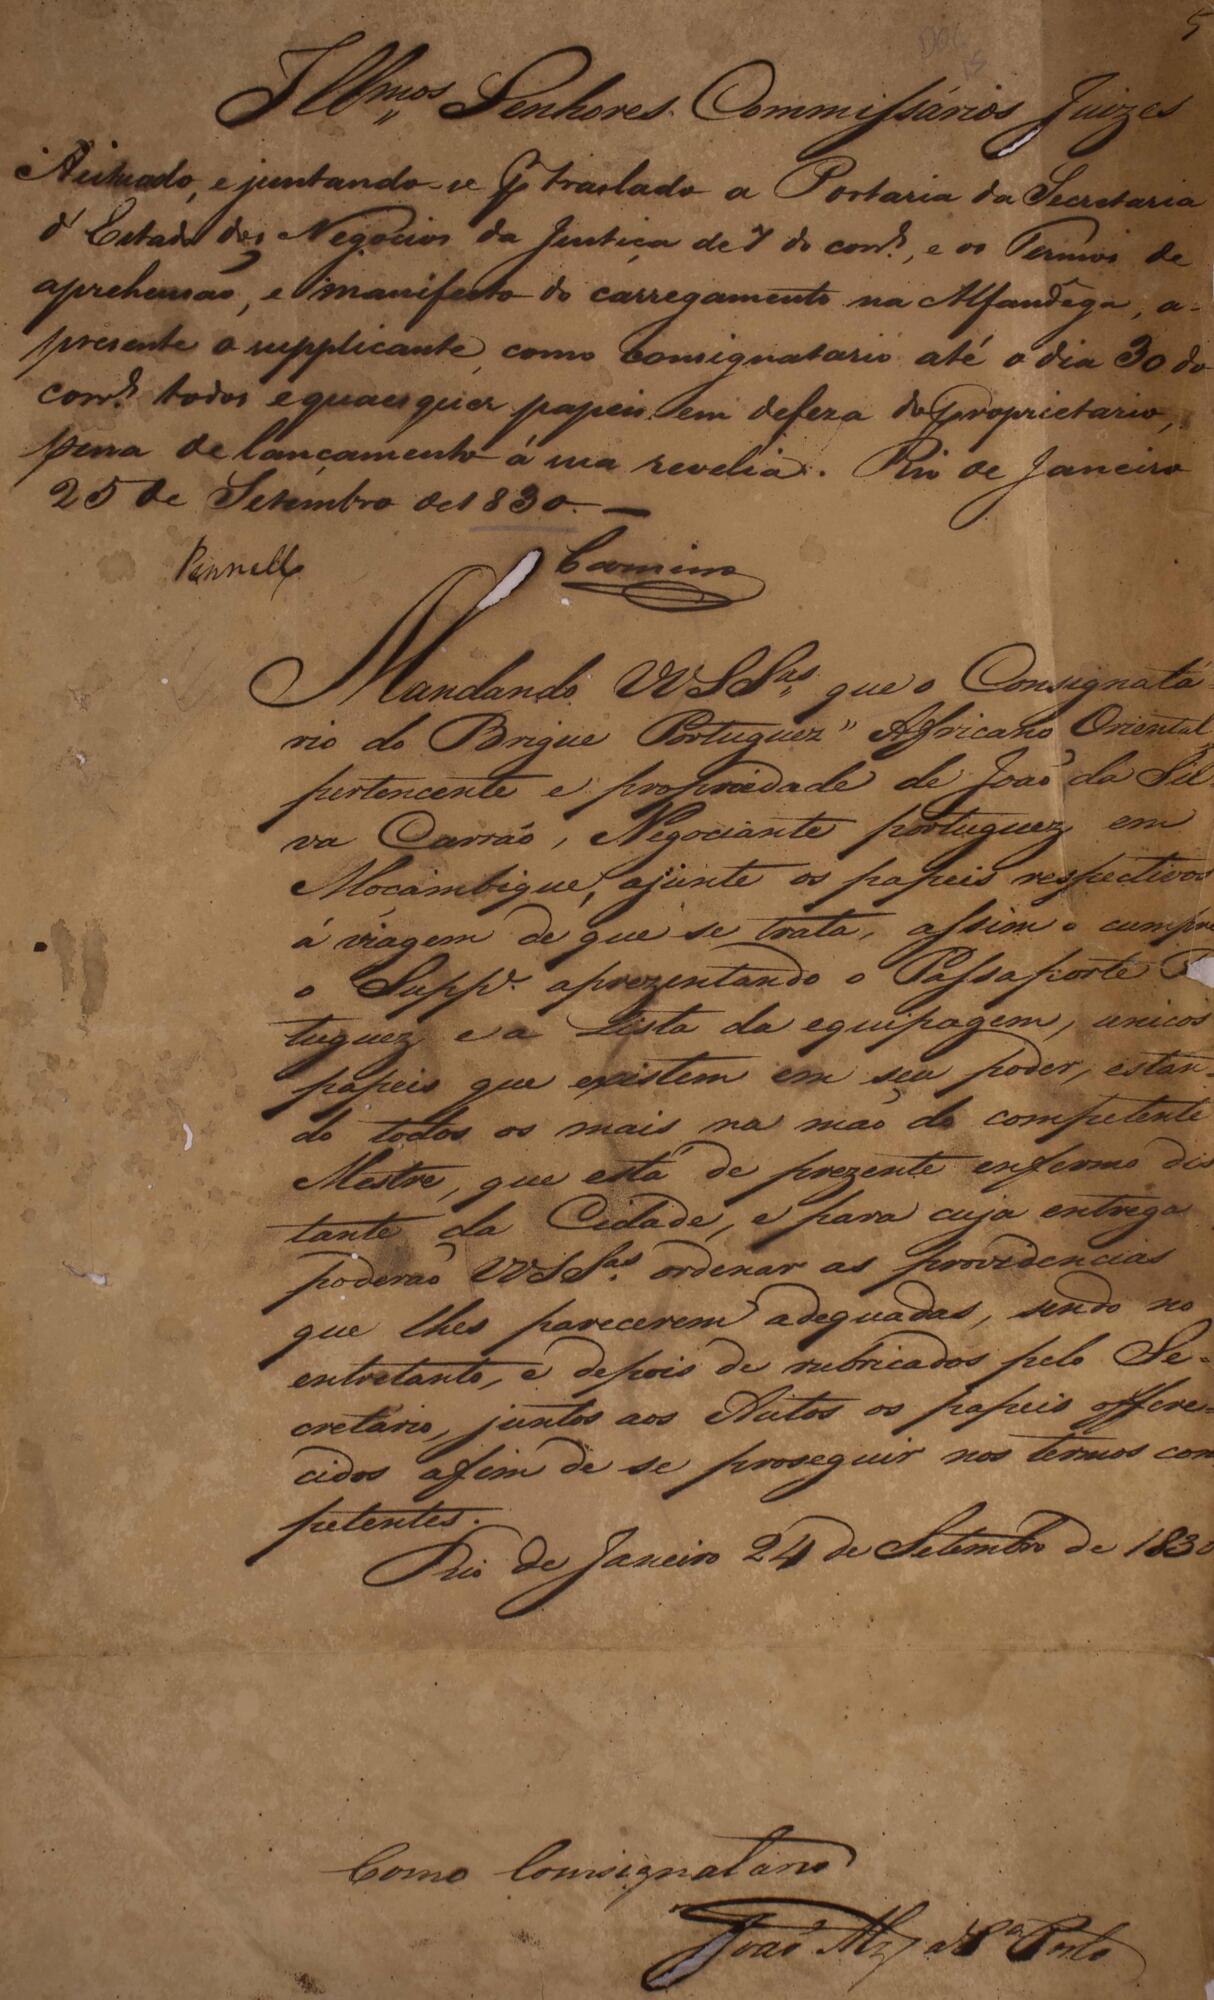 5
Doc
15
Ill.mos Senhores Commissários Juizes
Actuado, e juntando-se p.r traslado a Portaria da Secretaria
d'Estado dos Negocios da Justiça de 7 do corr.e, e os Termos de
aprehensaõ, e manifesto do carregamento na Alfandega, a-
presente o supplicante, como consignatario até o dia 30 do
corr.e todos e quaesquer papeis em defeza do proprietario,
pena de lançamento á sua revelia. Rio de Janeiro
25 de Setembro de 1830.
Pennell
Carneiro
Mandando VV SS.as que o Consignatá-
rio do Brigue Portuguez "Africano Oriental"
pertencente e propriedade de Joaõ da Sil-
va Carraõ, Negociante portuguez em
Mocámbique, ajunte os papeis respectivos
á viagem de que se trata, assim o cumpre
o Supp.e aprezentando o Passaporte
tuguez e a Lista da equipagem, unicos
papeis que existem em seu poder, estan-
do todos os mais na maõ do competente
Mestre, que está de prezente enfermo dis
tante da Cidade, e para cuja entrega
poderaõ VV SS.as ordenar as providencias
que lhes parecerem adequadas, sendo no
entretanto, e depois de rubricados pelo Se-
cretário, juntos aos Autos os papeis offere-
cidos afim de se proseguir nos termos com
petentes.
Rio de Janeiro 24 de Setembro de 1830
Como Consignatario
Joaõ Alz da S.a Porto